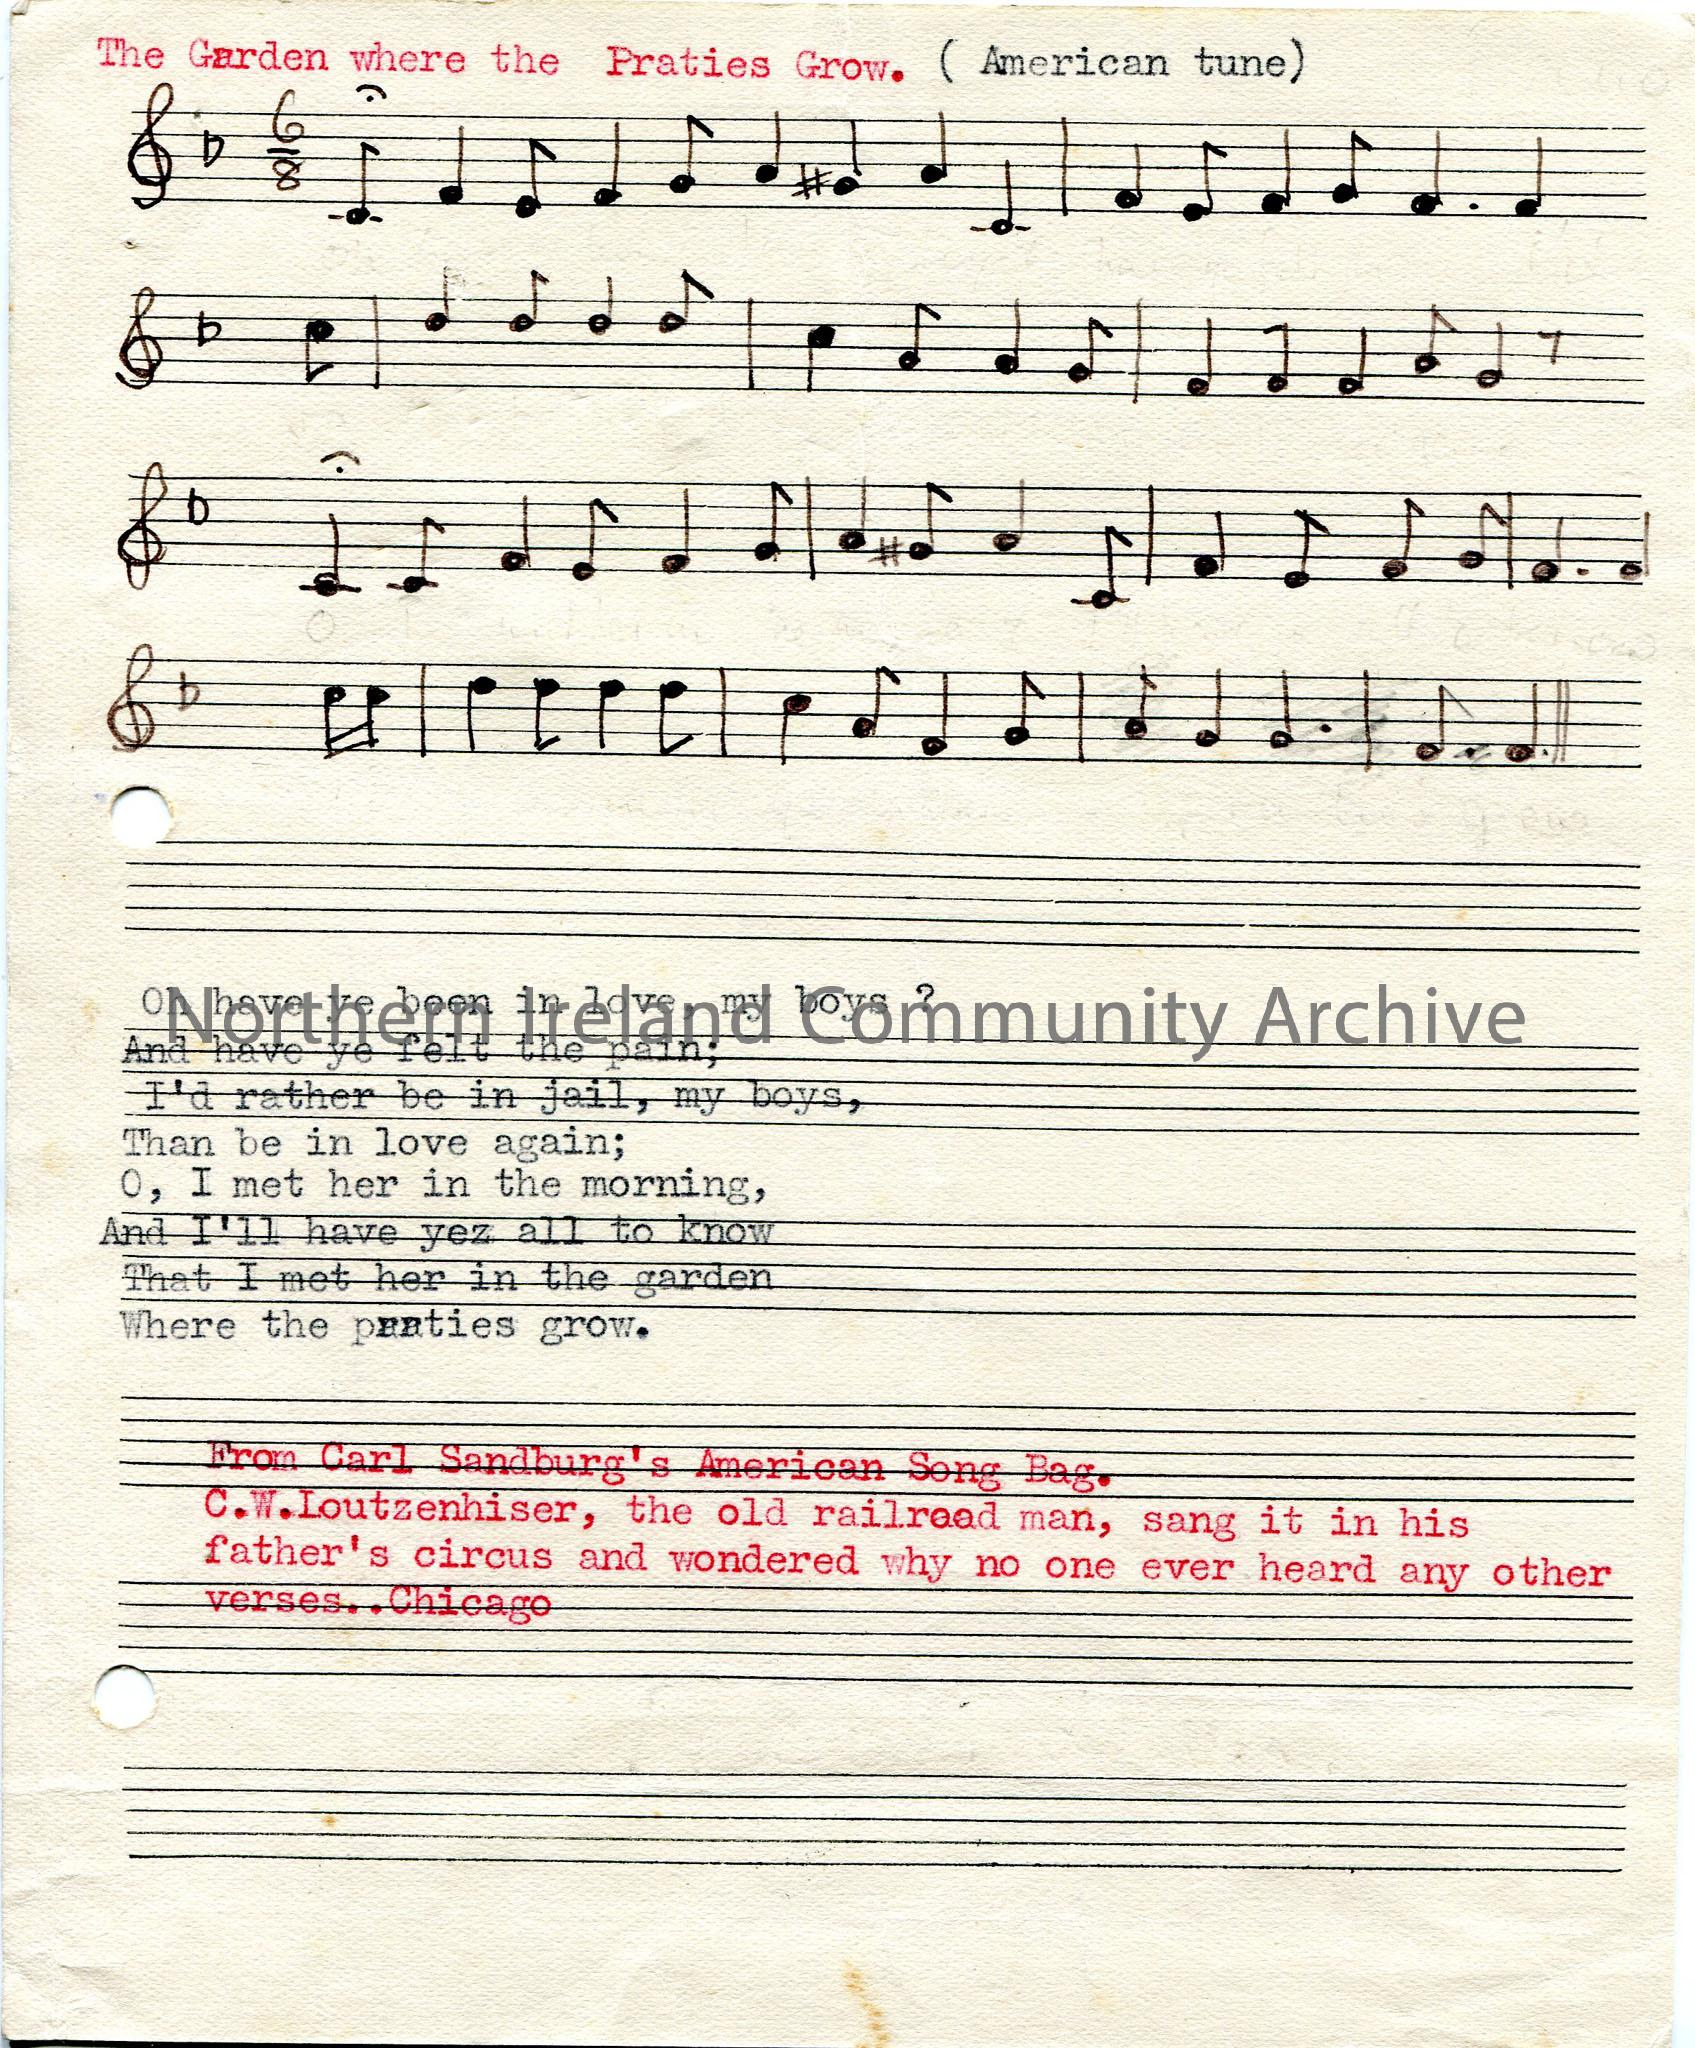 The Garden where the Praties Grow. ( American tune)
6
8
Oh have ye been in love, my boys ?
Northern Ireland Community Archive
And have ye felt the pain;
I'd rather be in jail, my boys,
Than be in love again;
O, I met her in the morning,
And I'll have yez all to know
That I met her in the garden
Where the praties grow.
From Carl Sandburg's American Song Bag.
C.W.Loutzenhiser, the old railroad man, sang it in his
father's circus and wondered why no one ever heard any other
verses..Chicago